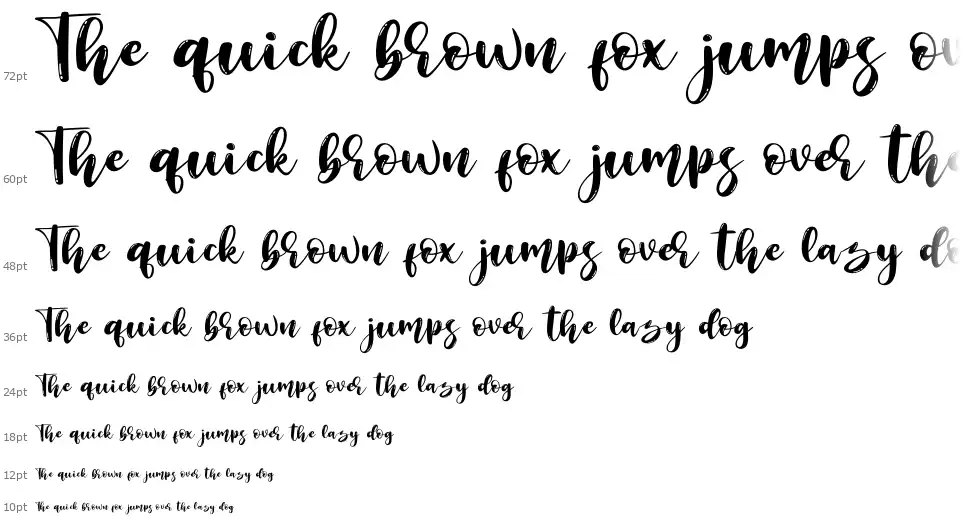 72pt The quick brown fox jumps ov
60pt The quick brown fox jumps over the
48pt The quick brown fox jumps over the lazy do
36pt The quick brown fox jumps over the lazy dog
24pt The quick brown fox jumps over the lazy dog
18pt The quick brown fox jumps over the lazy dog
12pt The quick brown fox jumps over the lazy dog
10pt The quick brown fox jumps over the lazy dog